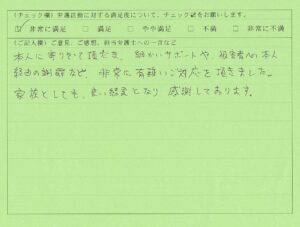 (チェック欄) 弁護活動に対する満足度について、チェック☑をお願いします。
☑ 非常に満足 □ 満足 □ やや満足 □ 不満 □ 非常に不満
(ご記入欄) ご意見、ご感想、担当弁護士への一言など
本人に寄りそって頂き、細かいサポートや、被害者への本人
経由の謝罪など、非常に有難いご対応を頂きました。
家族としても、良い結果となり 感謝しております。